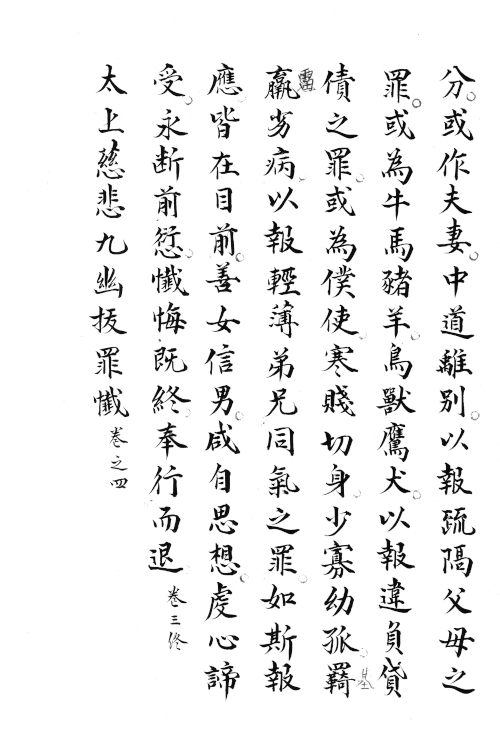 分。或作夫妻。中道離別。以報疏隔父母之
罪。或為牛馬豬羊。鳥獸鷹犬。以報違負貸
債之罪。或為僕使。寒賤切身。少寡幼孤。羇基
羸雷劣病。以報輕薄弟兄同氣之罪。如斯報
應皆在目前。善女信男。咸自思想。虔心諦
受。永断前愆。懺悔既終。奉行而退 卷三终
太上慈悲九幽拔罪懺 卷之四